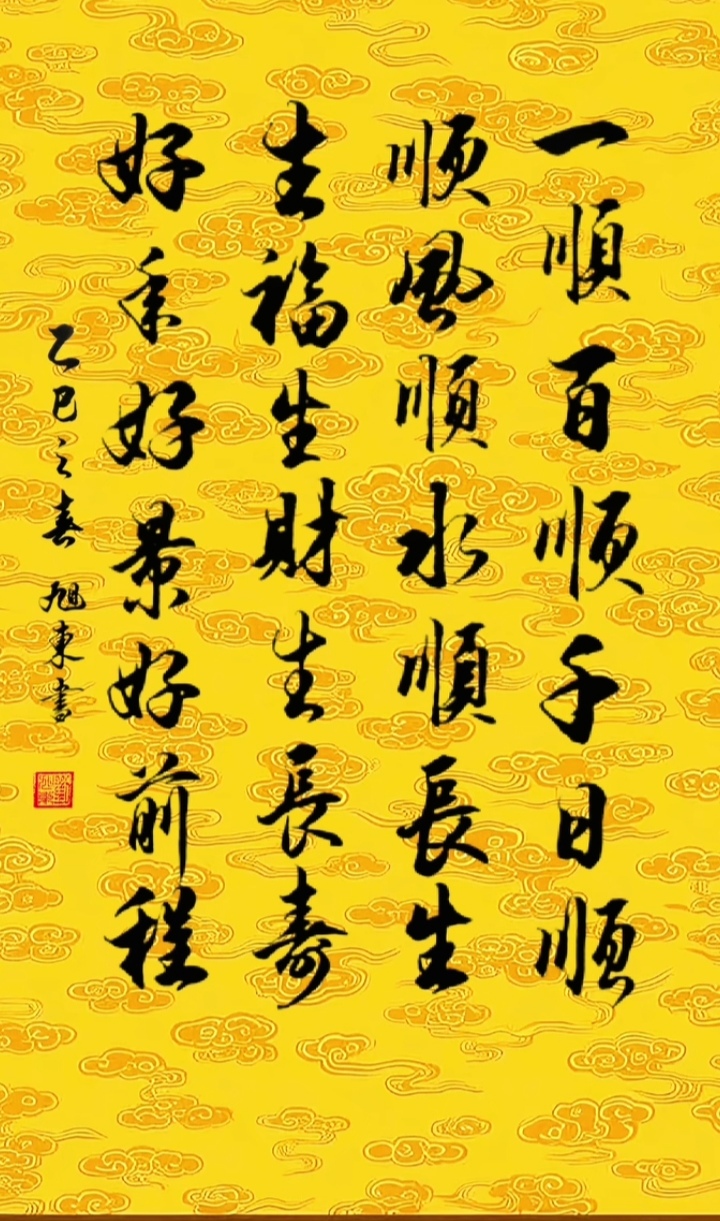 一順百順千日順
順風順水順長生
生福生財生長壽
好年好景好前程
乙巳之春 旭東書